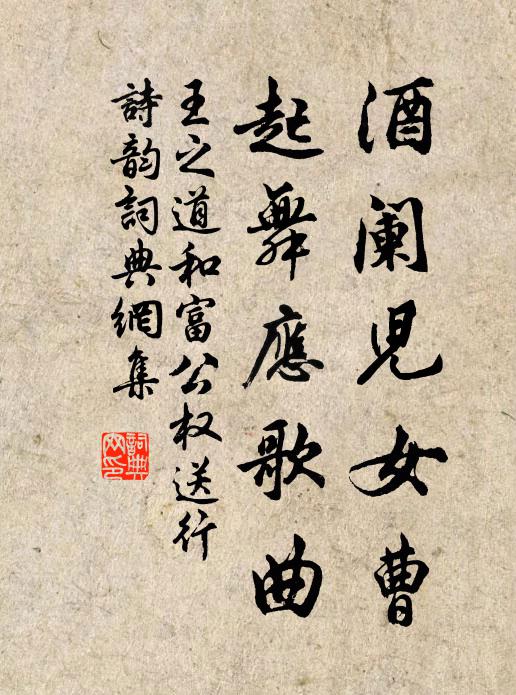 酒阑兒女曹
起舞應歌曲
王之道和富公权送行
詩韵詞典網集
詞典网印